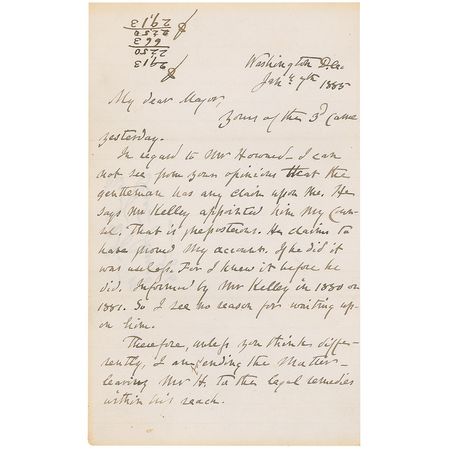 2913
2250
663
2250
2913
Washington D.C.
Jany 7th 1885
My dear Major,
Yours of the 3d came
yesterday.
In regard to Mr Howard – I can
not see from your opinions that the
gentleman has any claim upon me. He
says Mr Kelley appointed him my Coun-
sel. That is preposterous. He claims to
have proved my accounts. If he did it
was useless. For I knew it before he
did. Informed by Mr Kelley in 1880 or
1881. So I see no reason for waiting up-
on him.
Therefore, unless you think differ-
ently, I am ending the matter –
leaving Mr H. to the legal remedies
within his reach.